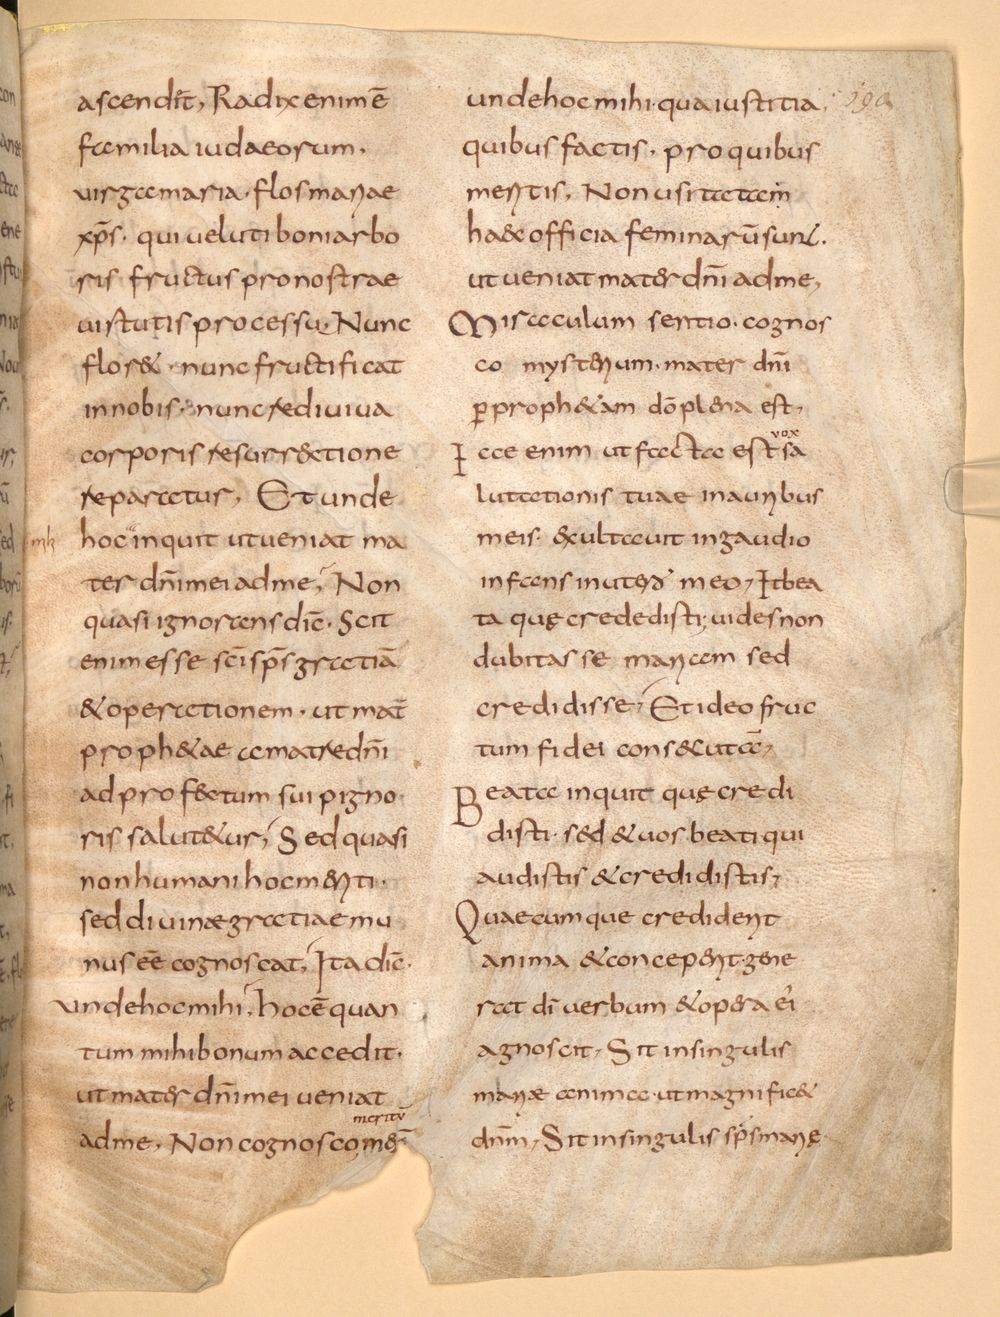 ascendit̄, Radix enim ē
familia iudaeorum.
virga maria. flos mariae
xp̄s. qui ueluti boni arbo
ris fructus pro nostrae
uirtutis processu. Nunc
flor&. nunc fructificat
in nobis. nunc rediuiua
corporis resurr&ctione
reparatur, Et unde
hoc inquit ut ueniat ma
ter dn̄i mei ad me, Non
quasi ignorans dic̄. Scit
enim esse sc̄i sp̄s gratiā
& operationem. ut mat̄
proph&ae a matre dn̄i
ad prof&ctum sui pigno
ris salut&ur, Sed quasi
non humani hoc meriti.
sed diuinæ gratiae mu
nus eē cognoscat, Ita dic̄.
unde hoc mihi, hoc ē quan
tum mihi bonum accedit.
ut mater dn̄i mei ueniat
meritū
ad me, Non cognosco
190
unde hoc mihi. qua iustitia.
quibus factis. pro quibus
meritis, Non usitatam
haec officia feminarū sunt.
ut ueniat mater dn̄i ad me,
Miraculum sentio. cognos
co mysterium. mater dn̄i
p̱ proph&am dō plena est,
vox
Ecce enim ut facta est sa
lutationis tuae in auribus
meis. exultauit in gaudio
infans in utero meo, Et bea
ta quę credidisti; uides non
dubitasse mariam sed
credidisse, Et ideo fruc
tum fidei consecuta,
Beata inquit quę credi
disti. sed & uos beati qui
audistis & credidistis,
Quaecumque crediderit
anima & conceperit. gene
rat dī uerbum & opera ei
agnoscit, Sit in singulis
mariæ anima. ut magnific&
dn̄m, Sit in singulis sp̄s marię